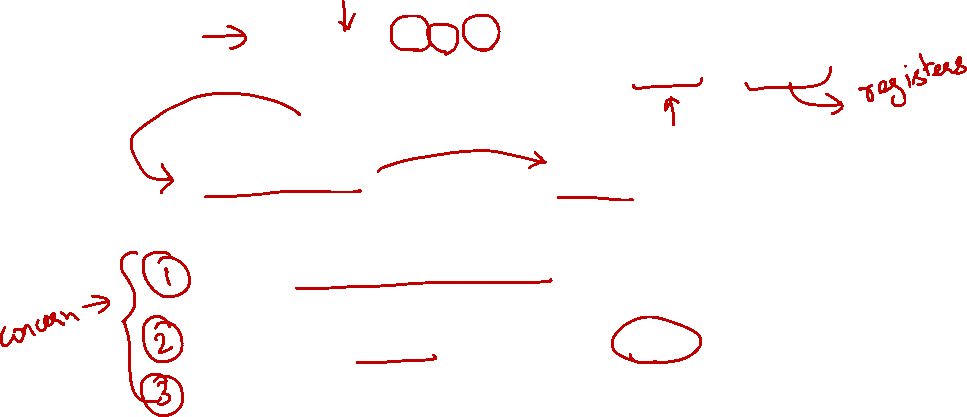 registers
1
concern
2
3